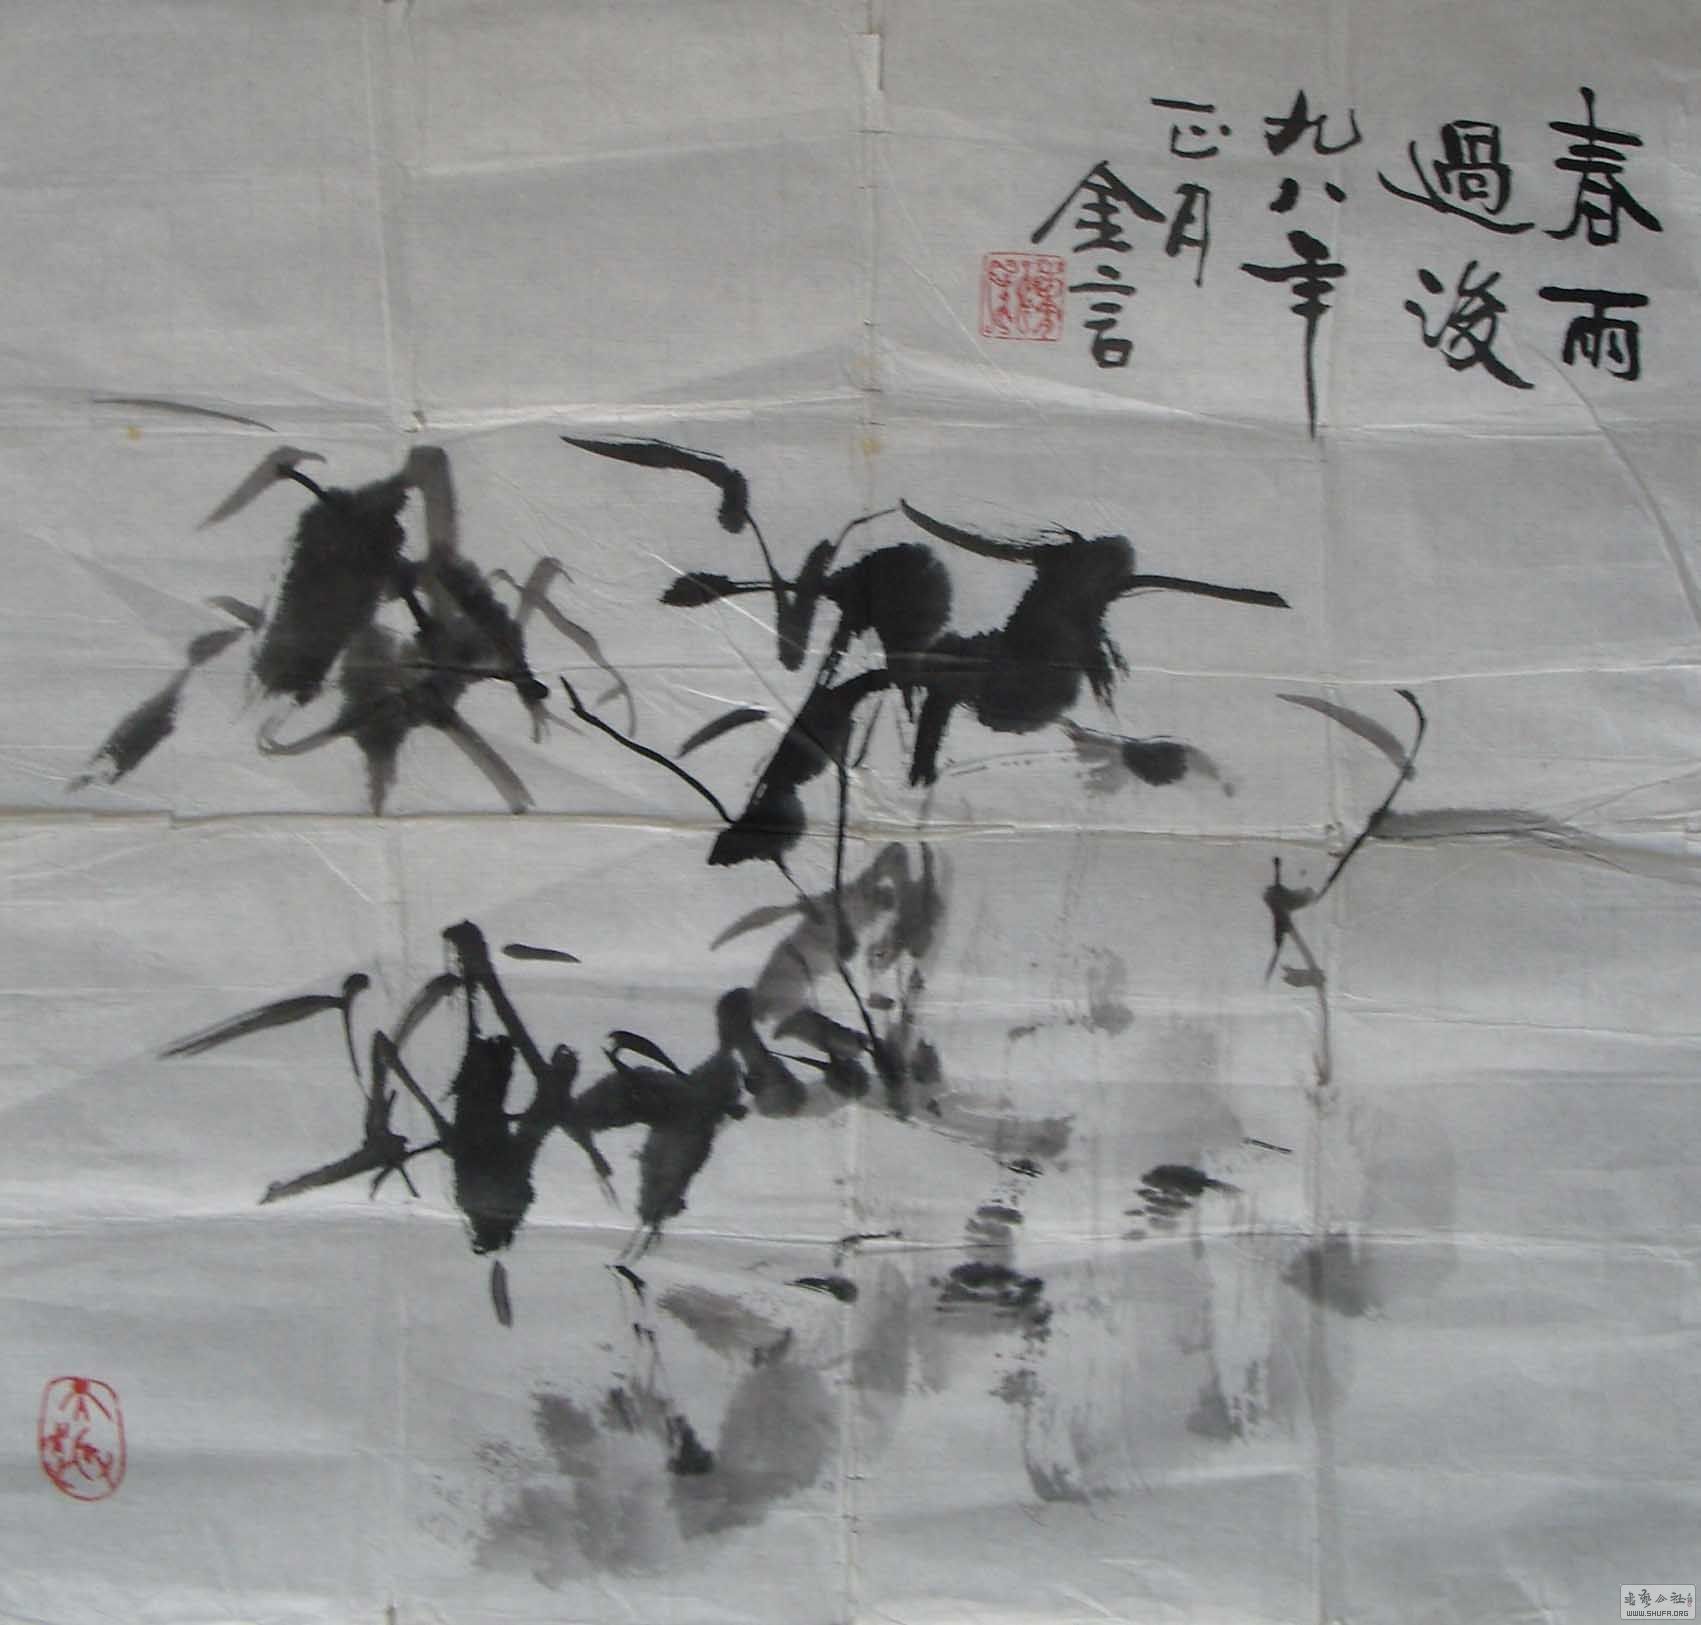 春雨
過後
九八年
正月
金言
书艺公社
WWW.SHUFA.ORG